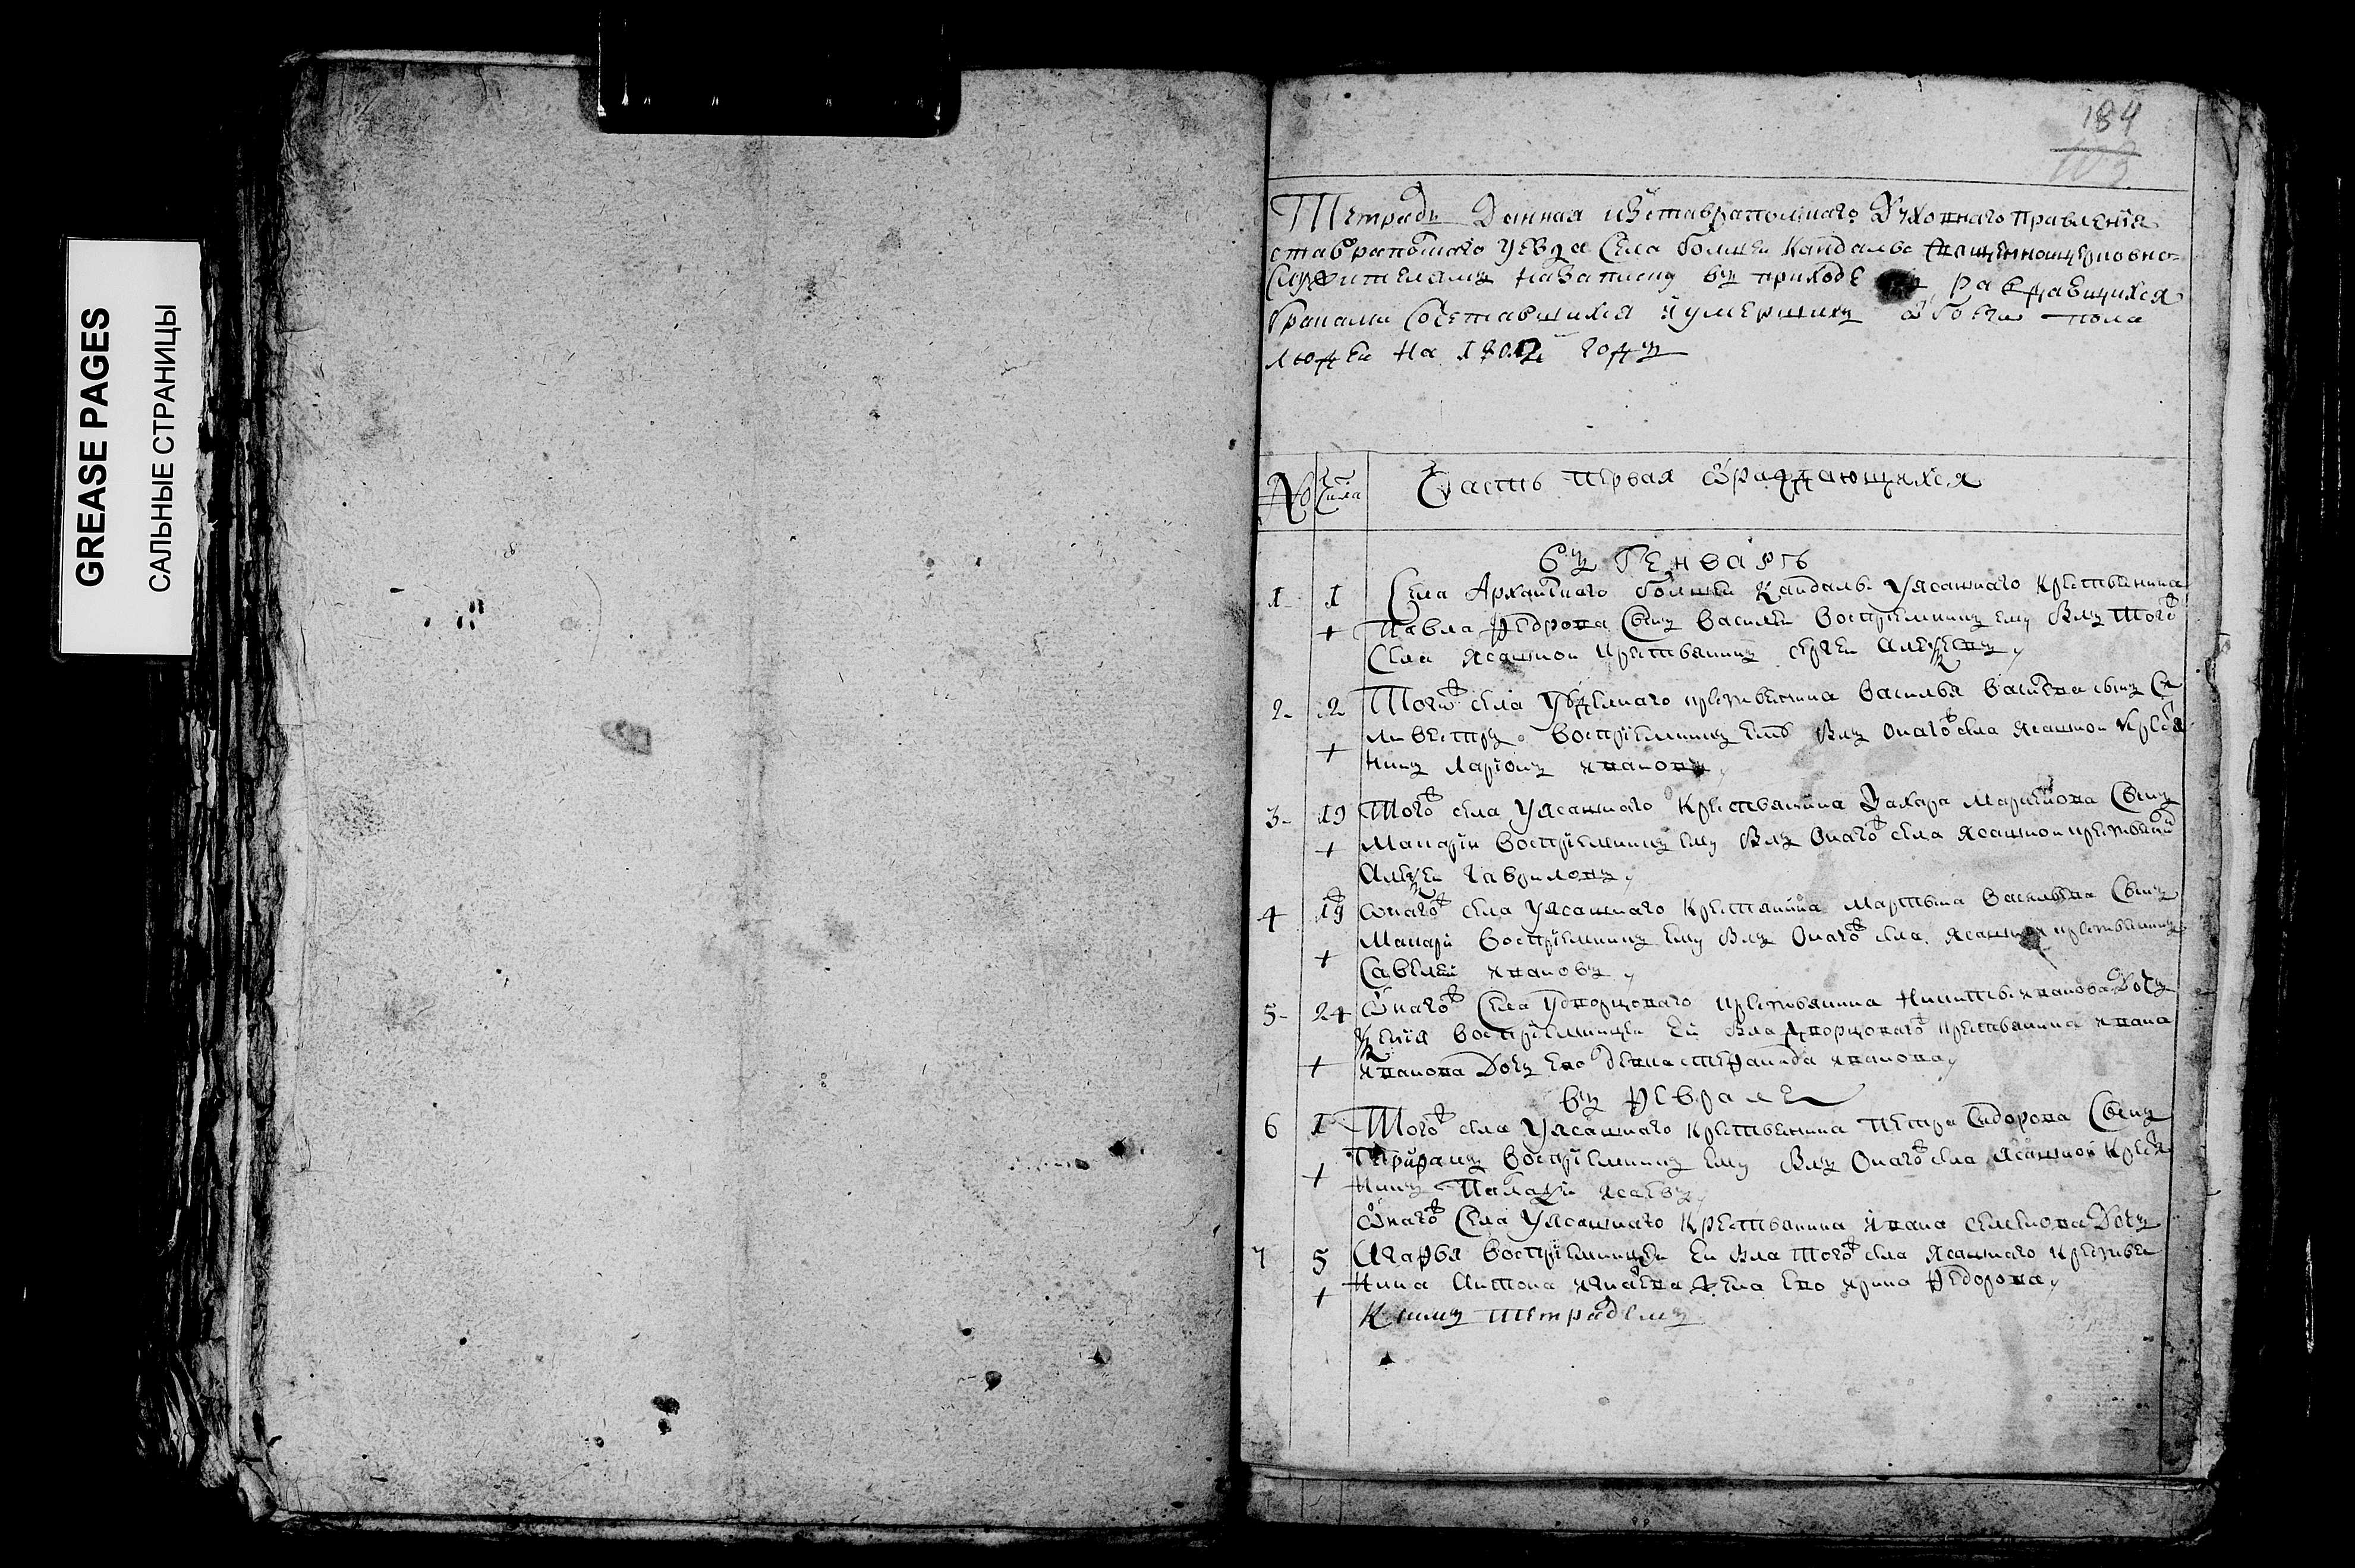 GREASE PAGES
САЛЬНЫЕ СТРАНИЦЫ
184
103
Тетрадь Данная изставрапольскаго Духовнаго правления
ставрапольскаго уезда Села болшеи Кандалы священноцерковно-
служителямъ назаписку въ приходе раждавщихся
браками Сочетавшихся иумершихъ обоего пола
людеи на 1802 годъ
№ Числа Часть первая ораждающихся
въ Генваръ
1 1 Села Архангского болшеи Кандалы Уясашнаго Крестьянина
+ Павла Федрова Сынъ Василеи Восприемникъ ему былъ того
Села ясашнои Крестьянинъ сергеи Алексевъ
2 2 Того села Удѣлнаго крестьянина Василья сынъ Се
ливестръ Восприемникъ былъ онаго села ясашнои кресья
+ нинъ Ларионъ ивановъ
3 19 Того села Уясашнаго Крестьянина Захара Сынъ
+ Макарiи Восприемникъ ему былъ Онаго села ясашнои крестьянинъ
Алексеи Гавриловъ
4 19 онаго села Уясашнаго Крестьянина Мартына Васильва Сынъ
+ Макари Восприемникъ ему былъ Онаго села ясашнои крестьянинъ
Савелеи ивановъ
5 24 Онаго Села Удворцоваго крестьянина Никиты иванова Дочь
Ксения Восприемница еи была Дворцоваго крестьянина ивана
+ иванова Дочь ево девка степанида иванова
въ Феврале
6 1 Того села Уясашнаго Крестьянина Петра Сидорова Сынъ
+ Восприемникъ ему былъ Онаго села ясашнои Кресья
нинъ
Онаго Села Уясашнаго Крестьянина ивана Дочь
7 5 Агафья Восприемница еи была того села ясашнаго крестьян
+ нина Антона жена ево ирина Федорова
К симъ тетрадемъ